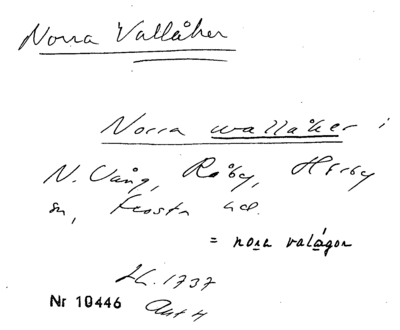 Norra Vallåker
Norra wallåker i
N. Vång, Råby, Hörby
sn, Frosta hd.
= nora valågor
LH. 1737
Nr 10446 Akt 4